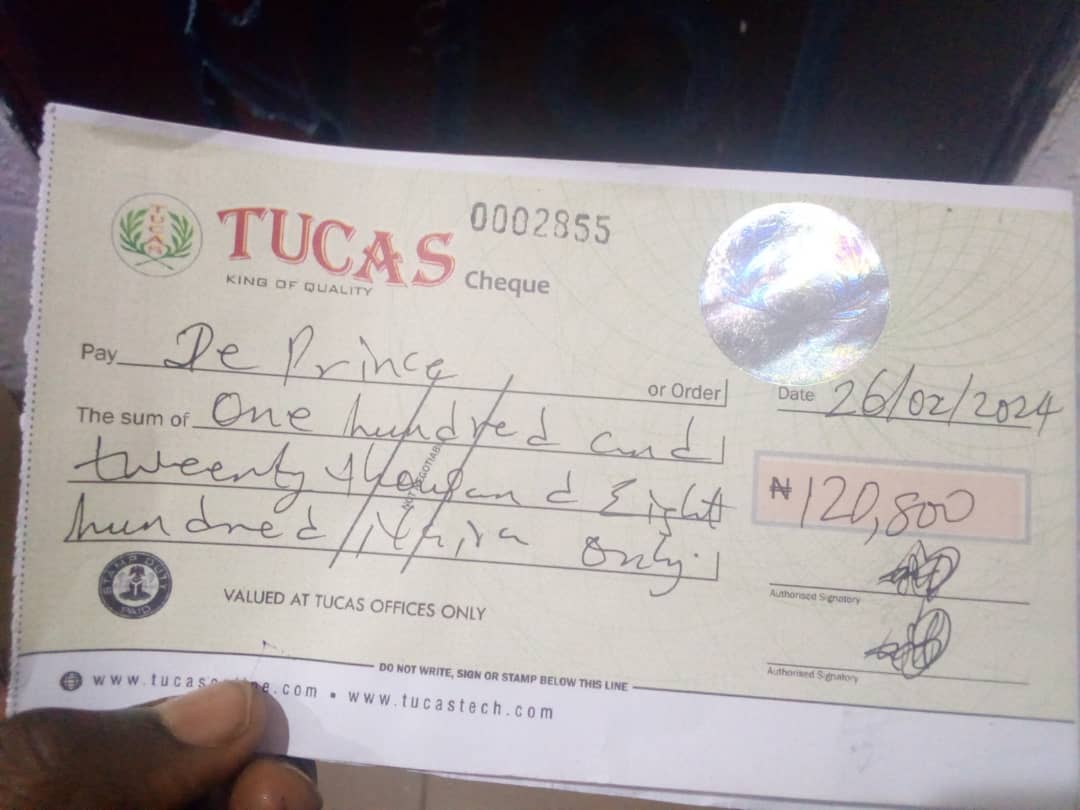 TUCAS
TUCAS
KING OF QUALITY
0002855
Cheque
Pay De Prince or Order
Date 26/02/2024
The sum of One hundred and
tweenty thousand Eight
₦ 120,800
hundred Naira only.
STAMP DUTY
PAID
VALUED AT TUCAS OFFICES ONLY
Authorised Signatory
Authorised Signatory
DO NOT WRITE, SIGN OR STAMP BELOW THIS LINE
www.tucastech.com